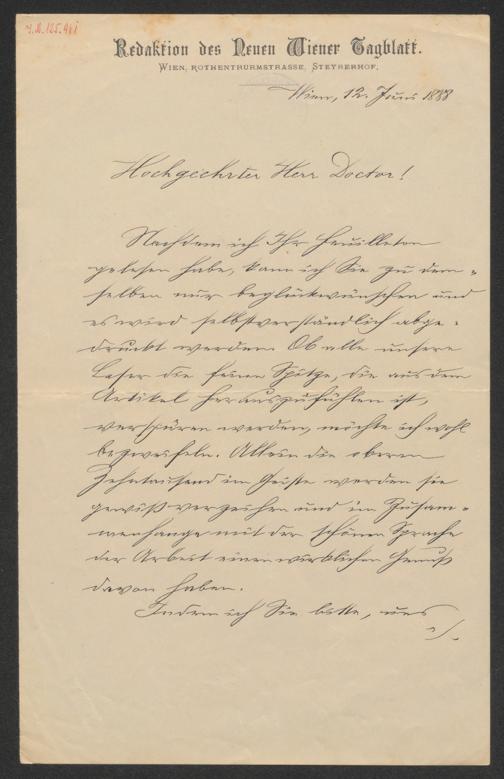 J.N. 125.941
Redaktion des Neuen Wiener Tagblatt.
WIEN, ROTHENTHURMSTRASSE, STEYRERHOF.
Wien, 12. Juni 1888
Hochgeehrter Herr Doctor!
Nachdem ich Ihr Feuilleton
gelesen habe, kann ich Sie zu dem-
selben nur beglückwünschen und
es wird selbstverständlich abge-
druckt werden. Ob alle unsere
Leser die feine Spitze, die aus dem
Artikel herauszufühlen ist,
verspüren werden, möchte ich wohl
bezweifeln. Allein die oberen
Zehntausend im Geiste werden sie
gewiß verzeihen und im Zusam-
menhange mit der schönen Sprache
der Arbeit einen wirklichen Genuß
davon haben.
Indem ich Sie bitte, uns